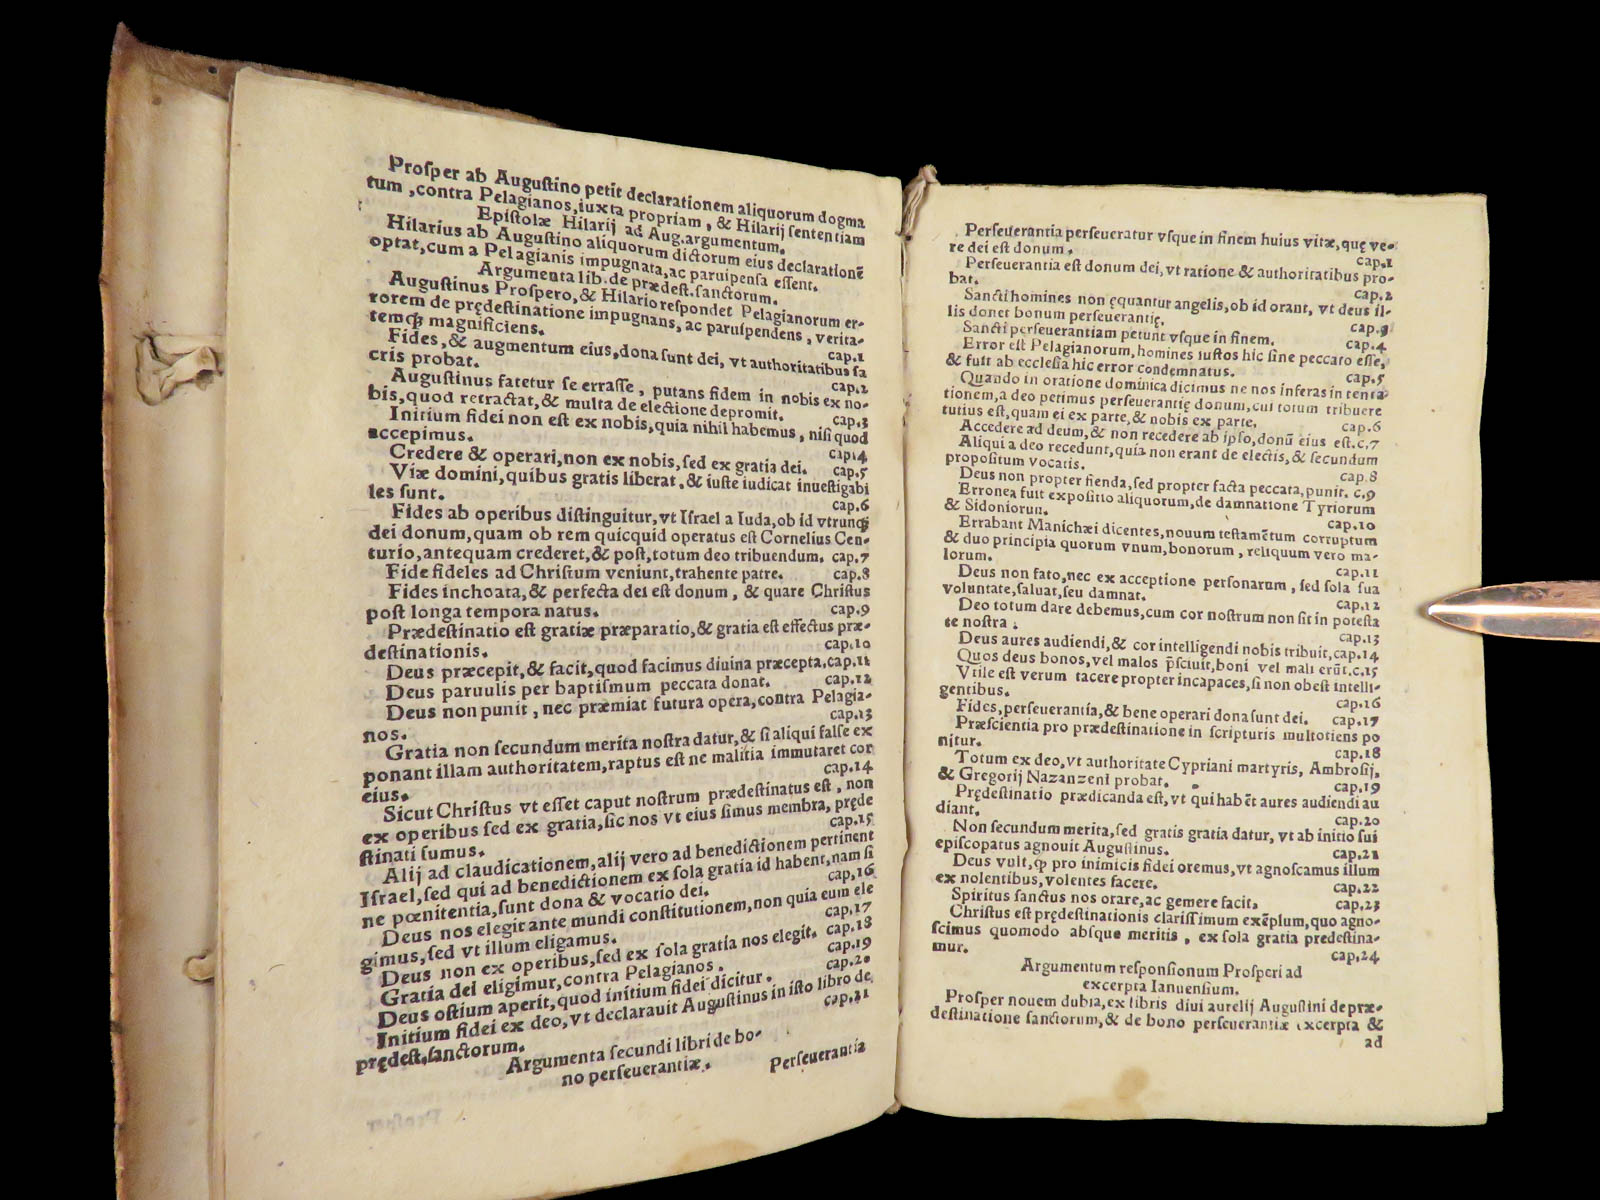 Proſper ab Auguſtino petit declarationem aliquorum dogma
tum, contra Pelagianos, iuxta propriam, & Hilarij ſententiam
Epiſtolæ Hilarij ad Aug. argumentum.
Hilarius ab Auguſtino aliquorum dictorum eius declarationē
optat, cum a Pelagianis impugnata, ac paruipenſa eſſent.
Argumenta lib. de prædeſt. ſanctorum.
Auguſtinus Proſpero, & Hilario reſpondet Pelagianorum er-
rorem de prędeſtinatione impugnans, ac paruipendens, verita-
temq́; magnificiens.
cap.1
Fides, & augmentum eius, dona ſunt dei, vt authoritatibus ſa
cris probat.
cap.2
Auguſtinus fatetur ſe erraſſe, putans fidem in nobis ex no-
bis, quod retractat, & multa de electione depromit.
cap.3
Initium fidei non eſt ex nobis, quia nihil habemus, niſi quod
accepimus.
cap.4
Credere & operari, non ex nobis, ſed ex gratia dei. cap.5
Viæ domini, quibus gratis liberat, & iuſte iudicat inueſtigabi
les ſunt.
cap.6
Fides ab operibus diſtinguitur, vt Iſrael a Iuda, ob id vtrunq́;
dei donum, quam ob rem quicquid operatus eſt Cornelius Cen-
turio, antequam crederet, & poſt, totum deo tribuendum. cap.7
Fide fideles ad Chriſtum veniunt, trahente patre. cap.8
Fides inchoata, & perfecta dei eſt donum, & quare Chriſtus
poſt longa tempora natus. cap.9
Prædeſtinatio eſt gratiæ præparatio, & gratia eſt effectus præ-
deſtinationis. cap.10
Deus præcepit, & facit, quod facimus diuina præcepta. cap.11
Deus paruulis per baptiſmum peccata donat. cap.12
Deus non punit, nec præmiat futura opera, contra Pelagia-
nos. cap.13
Gratia non ſecundum merita noſtra datur, & ſi aliqui falſe ex
ponant illam authoritatem, raptus eſt ne malitia immutaret cor
eius. cap.14
Sicut Chriſtus vt eſſet caput noſtrum prædeſtinatus eſt, non
ex operibus ſed ex gratia, ſic nos vt eius ſimus membra, pręde
ſtinati ſumus. cap.15
Alij ad claudicationem, alij vero ad benedictionem pertinent
Iſrael, ſed qui ad benedictionem ex ſola gratia id habent, nam ſi
ne pœnitentia, ſunt dona & vocatio dei. cap.16
Deus nos elegit ante mundi conſtitutionem, non quia eum ele
gimus, ſed vt illum eligamus. cap.17
Deus non ex operibus, ſed ex ſola gratia nos elegit. cap.18
Gratia dei eligimur, contra Pelagianos. cap.19
Deus oſtium aperit, quod initium fidei dicitur. cap.20
Initium fidei ex deo, vt declarauit Auguſtinus in iſto libro de
prędeſt. ſanctorum. cap.21
Argumenta ſecundi libri de bo-
no perſeuerantiæ.
Perſeuerantia
Perſeuerantia perſeueratur vſque in finem huius vitæ, quę ve-
re dei eſt donum. cap.1
Perſeuerantia eſt donum dei, vt ratione & authoritatibus pro-
bat. cap.2
Sancti homines non ęquantur angelis, ob id orant, vt deus il-
lis donet bonum perſeuerantię. cap.3
Sancti perſeuerantiam petunt vſque in finem. cap.4
Error eſt Pelagianorum, homines iuſtos hic ſine peccato eſſe,
& fuit ab eccleſia hic error condemnatus. cap.5
Quando in oratione dominica dicimus ne nos inferas in tenta-
tionem, a deo petimus perſeuerantię donum, cui totum tribuere
tutius eſt, quam ei ex parte, & nobis ex parte. cap.6
Accedere ad deum, & non recedere ab ipſo, donū eius eſt. c.7
Aliqui a deo recedunt, quia non erant de electis, & ſecundum
propoſitum vocatis. cap.8
Deus non propter fienda, ſed propter facta peccata, punit. c.9
Erronea fuit expoſitio aliquorum, de damnatione Tyriorum
& Sidoniorun. cap.10
Errabant Manichæi dicentes, nouum teſtamētum corruptum
& duo principia quorum vnum, bonorum, reliquum vero ma-
lorum. cap.11
Deus non fato, nec ex acceptione perſonarum, ſed ſola ſua
voluntate, ſaluat, ſeu damnat. cap.12
Deo totum dare debemus, cum cor noſtrum non ſit in poteſta
te noſtra. cap.13
Deus aures audiendi, & cor intelligendi nobis tribuit, cap.14
Quos deus bonos, vel malos p̄ſciuit, boni vel mali erūt. c.15
Vtile eſt verum tacere propter incapaces, ſi non obeſt intelli-
gentibus. cap.16
Fides, perſeuerantia, & bene operari dona ſunt dei. cap.17
Præſcientia pro prædeſtinatione in ſcripturis multotiens po
nitur. cap.18
Totum ex deo, vt authoritate Cypriani martyris, Ambroſij,
& Gregorij Nazanzeni probat. cap.19
Prędeſtinatio prædicanda eſt, vt qui habēt aures audiendi au
diant. cap.20
Non ſecundum merita, ſed gratis gratia datur, vt ab initio ſui
epiſcopatus agnouit Auguſtinus. cap.21
Deus vult, q̨ pro inimicis fidei oremus, vt agnoſcamus illum
ex nolentibus, volentes facere. cap.22
Spiritus ſanctus nos orare, ac gemere facit. cap.23
Chriſtus eſt prędeſtinationis clariſſimum exēplum, quo agno-
ſcimus quomodo abſque meritis, ex ſola gratia predeſtina-
mur. cap.24
Argumentum reſponſionum Proſperi ad
excerpta Ianuenſium.
Proſper nouem dubia, ex libris diui aurelij Auguſtini de præ-
deſtinatione ſanctorum, & de bono perſeuerantiæ excerpta &
ad